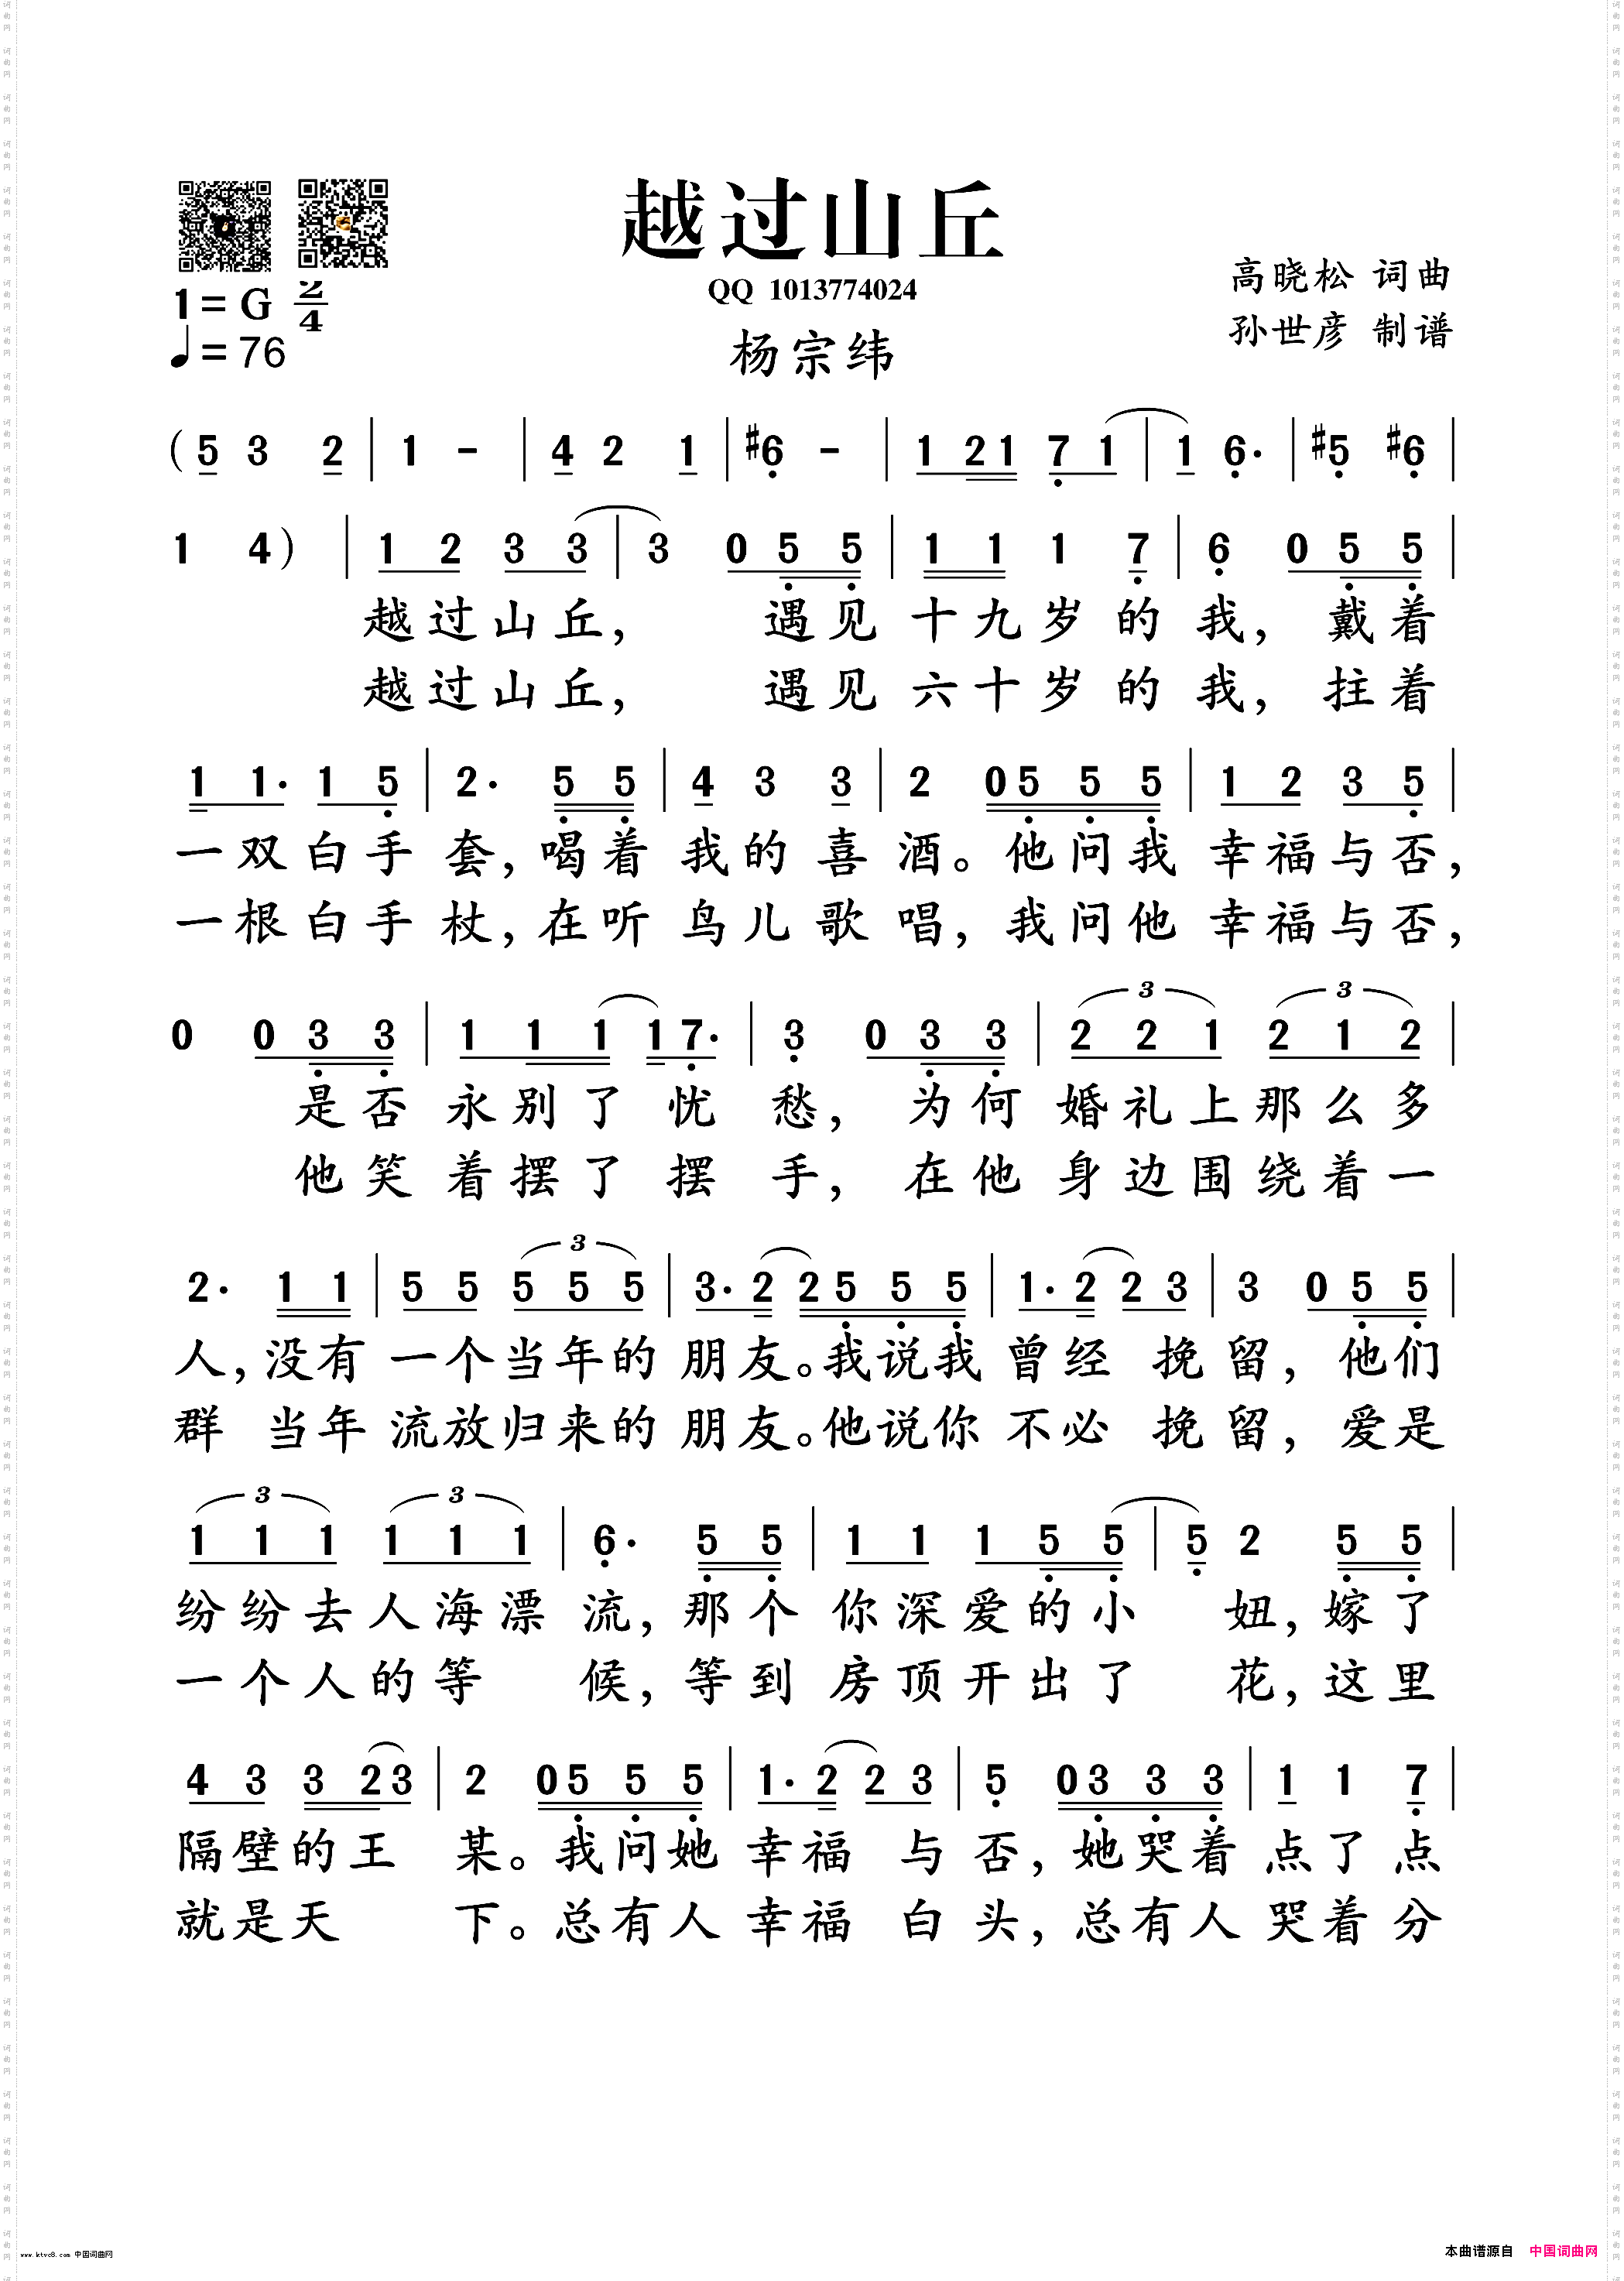 越过山丘
QQ 1013774024
高晓松 词曲
孙世彦 制谱
1=G 2/4
♩=76
杨宗纬
( 5 3 2 | 1 - | 4 2 1 | #6 - | 1 2 1 7 1 | 1 6. | #5 #6 |
1 4 ) | 1 2 3 3 | 3 0 5 5 | 1 1 1 7 | 6 0 5 5 |
越过山丘， 遇见 十九岁的我， 戴着
越过山丘， 遇见 六十岁的我， 拄着
1 1. 1 5 | 2. 5 5 | 4 3 3 | 2 0 5 5 5 | 1 2 3 5 |
一双白手套，喝着我的喜酒。他问我幸福与否，
一根白手杖，在听鸟儿歌唱，我问他幸福与否，
0 0 3 3 | 1 1 1 1 7. | 3 0 3 3 | 3 2 2 1 3 2 1 2 |
是否永别了忧愁，为何婚礼上那么多
他笑着摆了摆手，在他身边围绕着一
2. 1 1 | 5 5 3 5 5 5 | 3. 2 2 5 5 5 | 1. 2 2 3 | 3 0 5 5 |
人，没有一个当年的朋友。我说我曾经挽留，他们
群 当年流放归来的朋友。他说你不必挽留，爱是
3 1 1 1 3 1 1 1 | 6. 5 5 | 1 1 1 5 5 | 5 2 5 5 |
纷纷去人海漂流，那个你深爱的小妞，嫁了
一个人的等 候，等到房顶开出了花，这里
4 3 3 2 3 | 2 0 5 5 5 | 1. 2 2 3 | 5 0 3 3 3 | 1 1 7 |
隔壁的王某。我问她幸福与否，她哭着点了点
就是天 下。总有人幸福白头，总有人哭着分
www.ktvc8.com 中国词曲网
本曲谱源自 中国词曲网